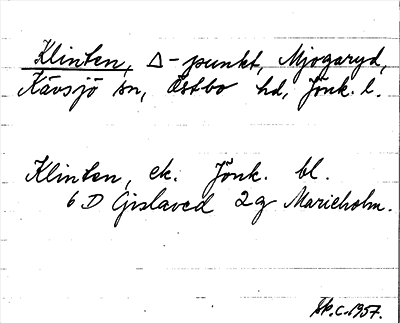 Klinten, Δ-punkt, Mjogaryd,
Kävsjö sn, Östbo hd, Jönk. l.
Klinten, ek. Jönk. bl.
6 D Gislaved 2g Marieholm.
Sk. C. 1957.